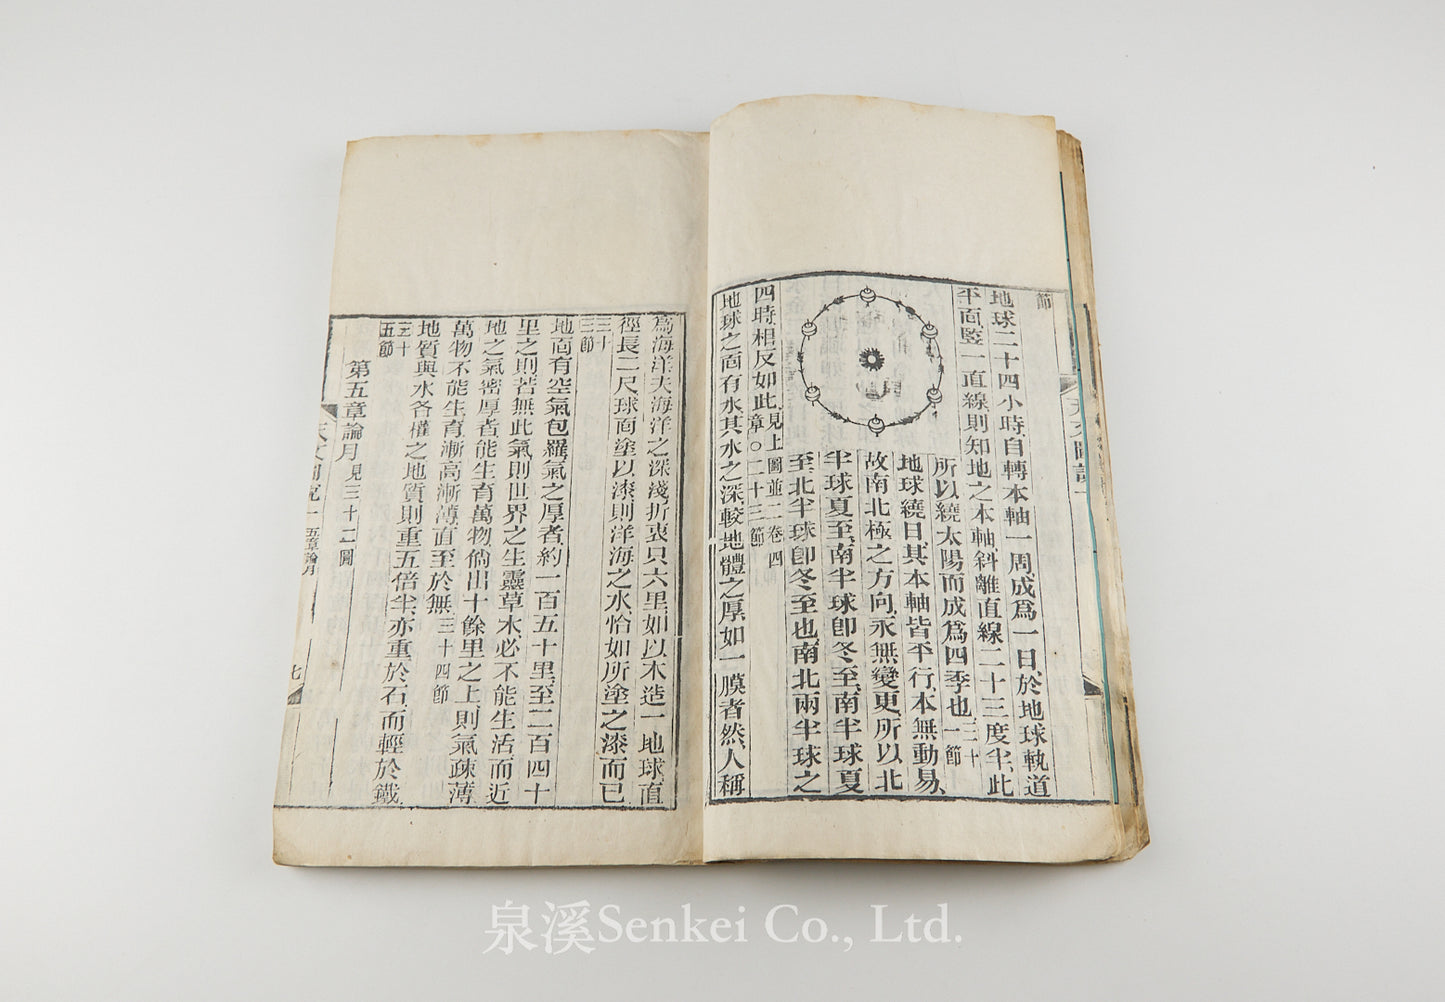 節
地球二十四小時、自轉本軸一周、成爲一日、於地球軌道
平面、竪一直線、則知地之本軸、斜離直線二十三度半、此
所以繞太陽而成爲四季也、三十一節
地球繞日、其本軸皆平行、本無動易、
故南北極之方向、永無變更、所以北
半球夏至、南半球卽冬至、南半球夏
至、北半球卽冬至也、南北兩半球之
四時、相反如此、見上圖並二卷四章○二十三節
地球之面有水、其水之深、較地體之厚、如一膜者然、人稱
爲海洋、夫海洋之深淺、折衷只六里、如以木造一地球、直
徑長二尺、球面塗以漆、則洋海之水、恰如所塗之漆而已、
三十三節
地面有空氣包羅、氣之厚者、約一百五十里、至二百四十
里之則、若無此氣、則世界之生靈草木、必不能生活、而近
地之氣密厚者、能生育萬物、倘出十餘里之上、則氣疎薄、
萬物不能生育、漸高漸薄、直至於無、三十四節
地質與水各權之、地質則重五倍半、亦重於石、而輕於鐵、
三十五節
第五章論月見三十二圖
天文圖說一 五章論月 七
天文圖說一
泉溪Senkei Co., Ltd.